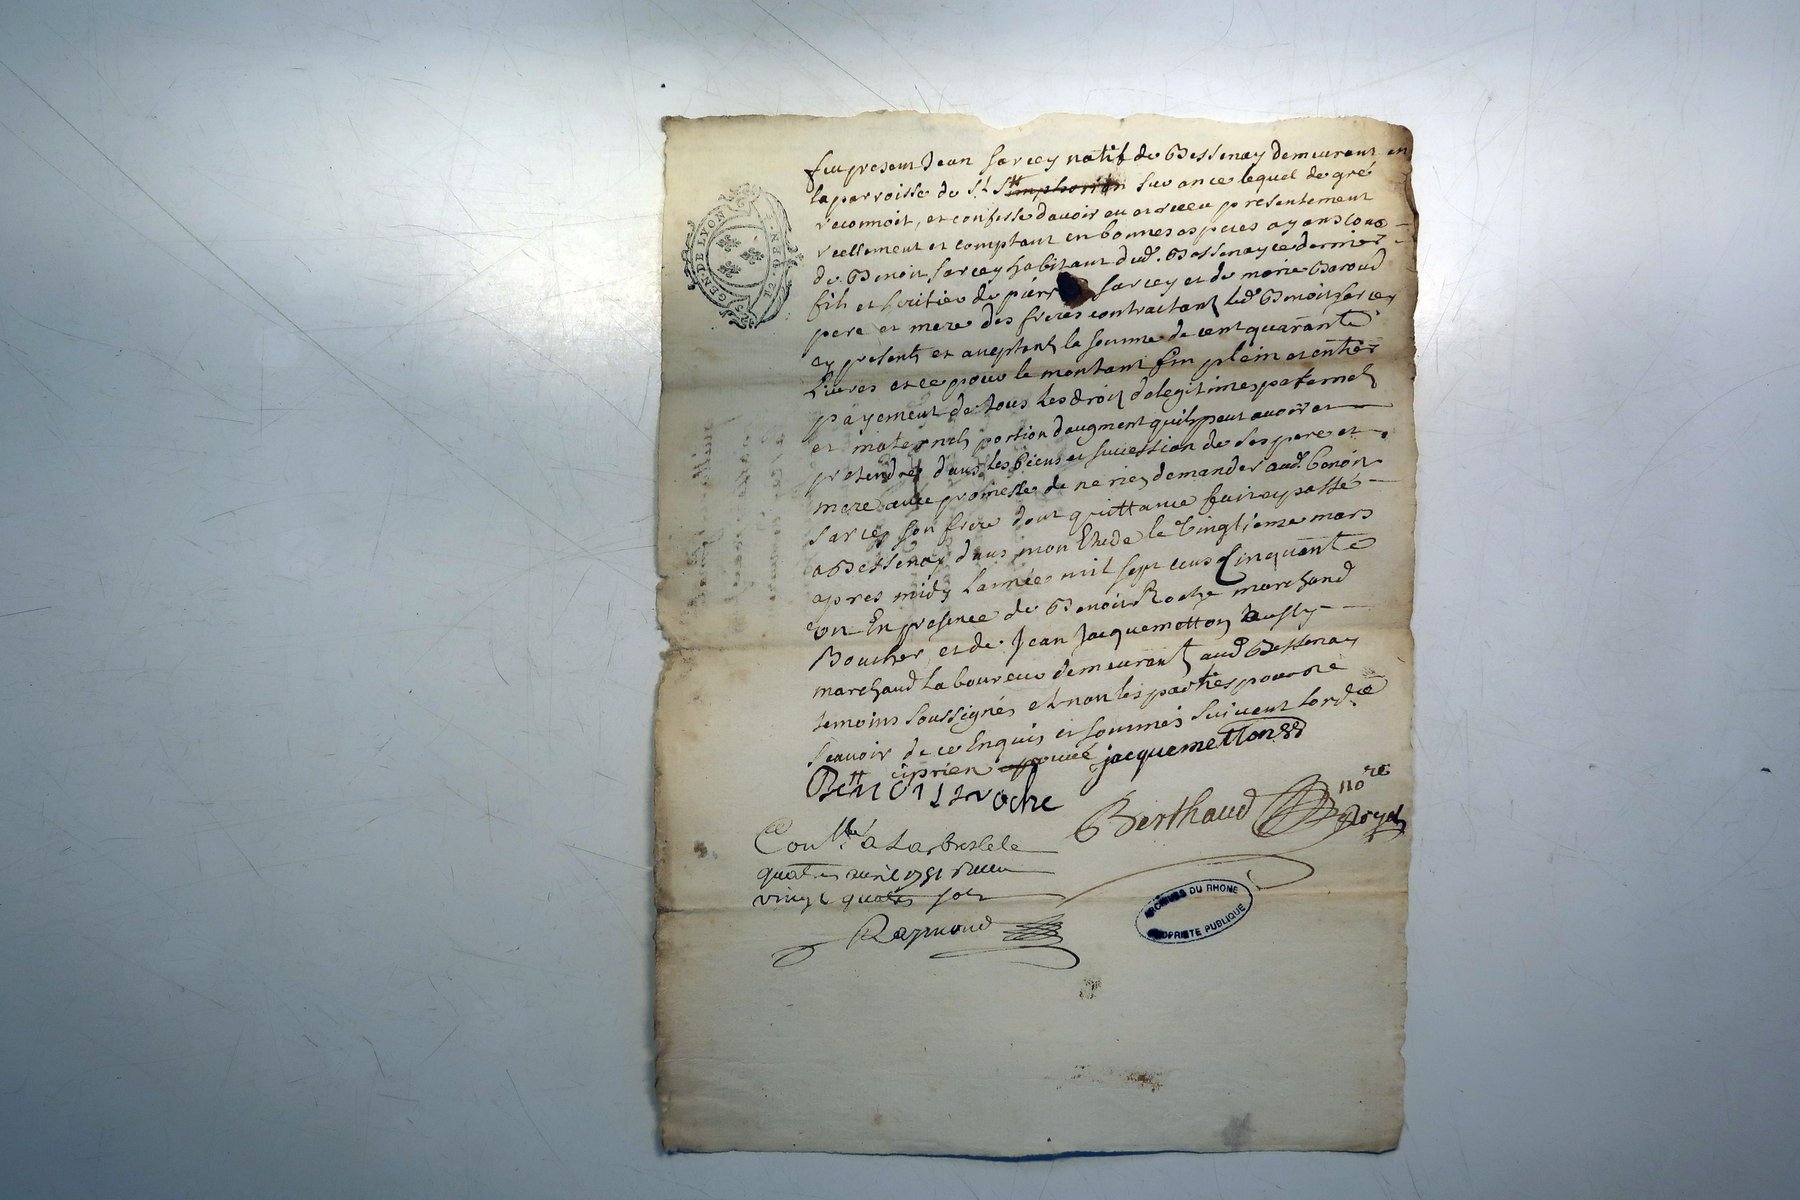 GEN. DE LYON
fut present Jean Sarcey natif de Bessenay demeurant en
la parroisse de St Simphorien sur ance lequel de gré
reconnoit, et confesse davoir eu et receu presentement
reellement et comptant en bonnes especes ayans cours
de Benoit Sarcey habitant dud. Bessenay ce dernier
fils et heritier de pierre Sarcey et de marie Baroud
pere et mere des freres contractants led. Benoit Sarcey
cy present et aceptant la somme de cent quarante
Livres et ce pour le montant fin plein et entier
payement de tous les droits de legitimes paternels
et maternels portion daugment quil peut avoir et
pretendre dans les biens et succession de ses pere et
mere avec promesse de ne rien demander aud. benoit
Sarcey son frere dont quittance fait et passé
a Bessenay dans mon Etude le vingtieme mars
apres midy lannée mil sept cens Cinquante
un En presence de Benoit Roche marchand
Boucher, et de Jean Jacquemetton aussy
marchand laboureur demeurants aud. Bessenay
temoins soussignés et non les parties pour ne
scavoir de ce Enquis et sommés suivent lord.ce
ciprien approuvé jacquemetton
Benoist roche
Berthaud no.re royal
Con.lé a Larbresle le
quatre avril 1751 receu
vingt quatre sols
Raymond
ARCHIVES DU RHONE
PROPRIETE PUBLIQUE